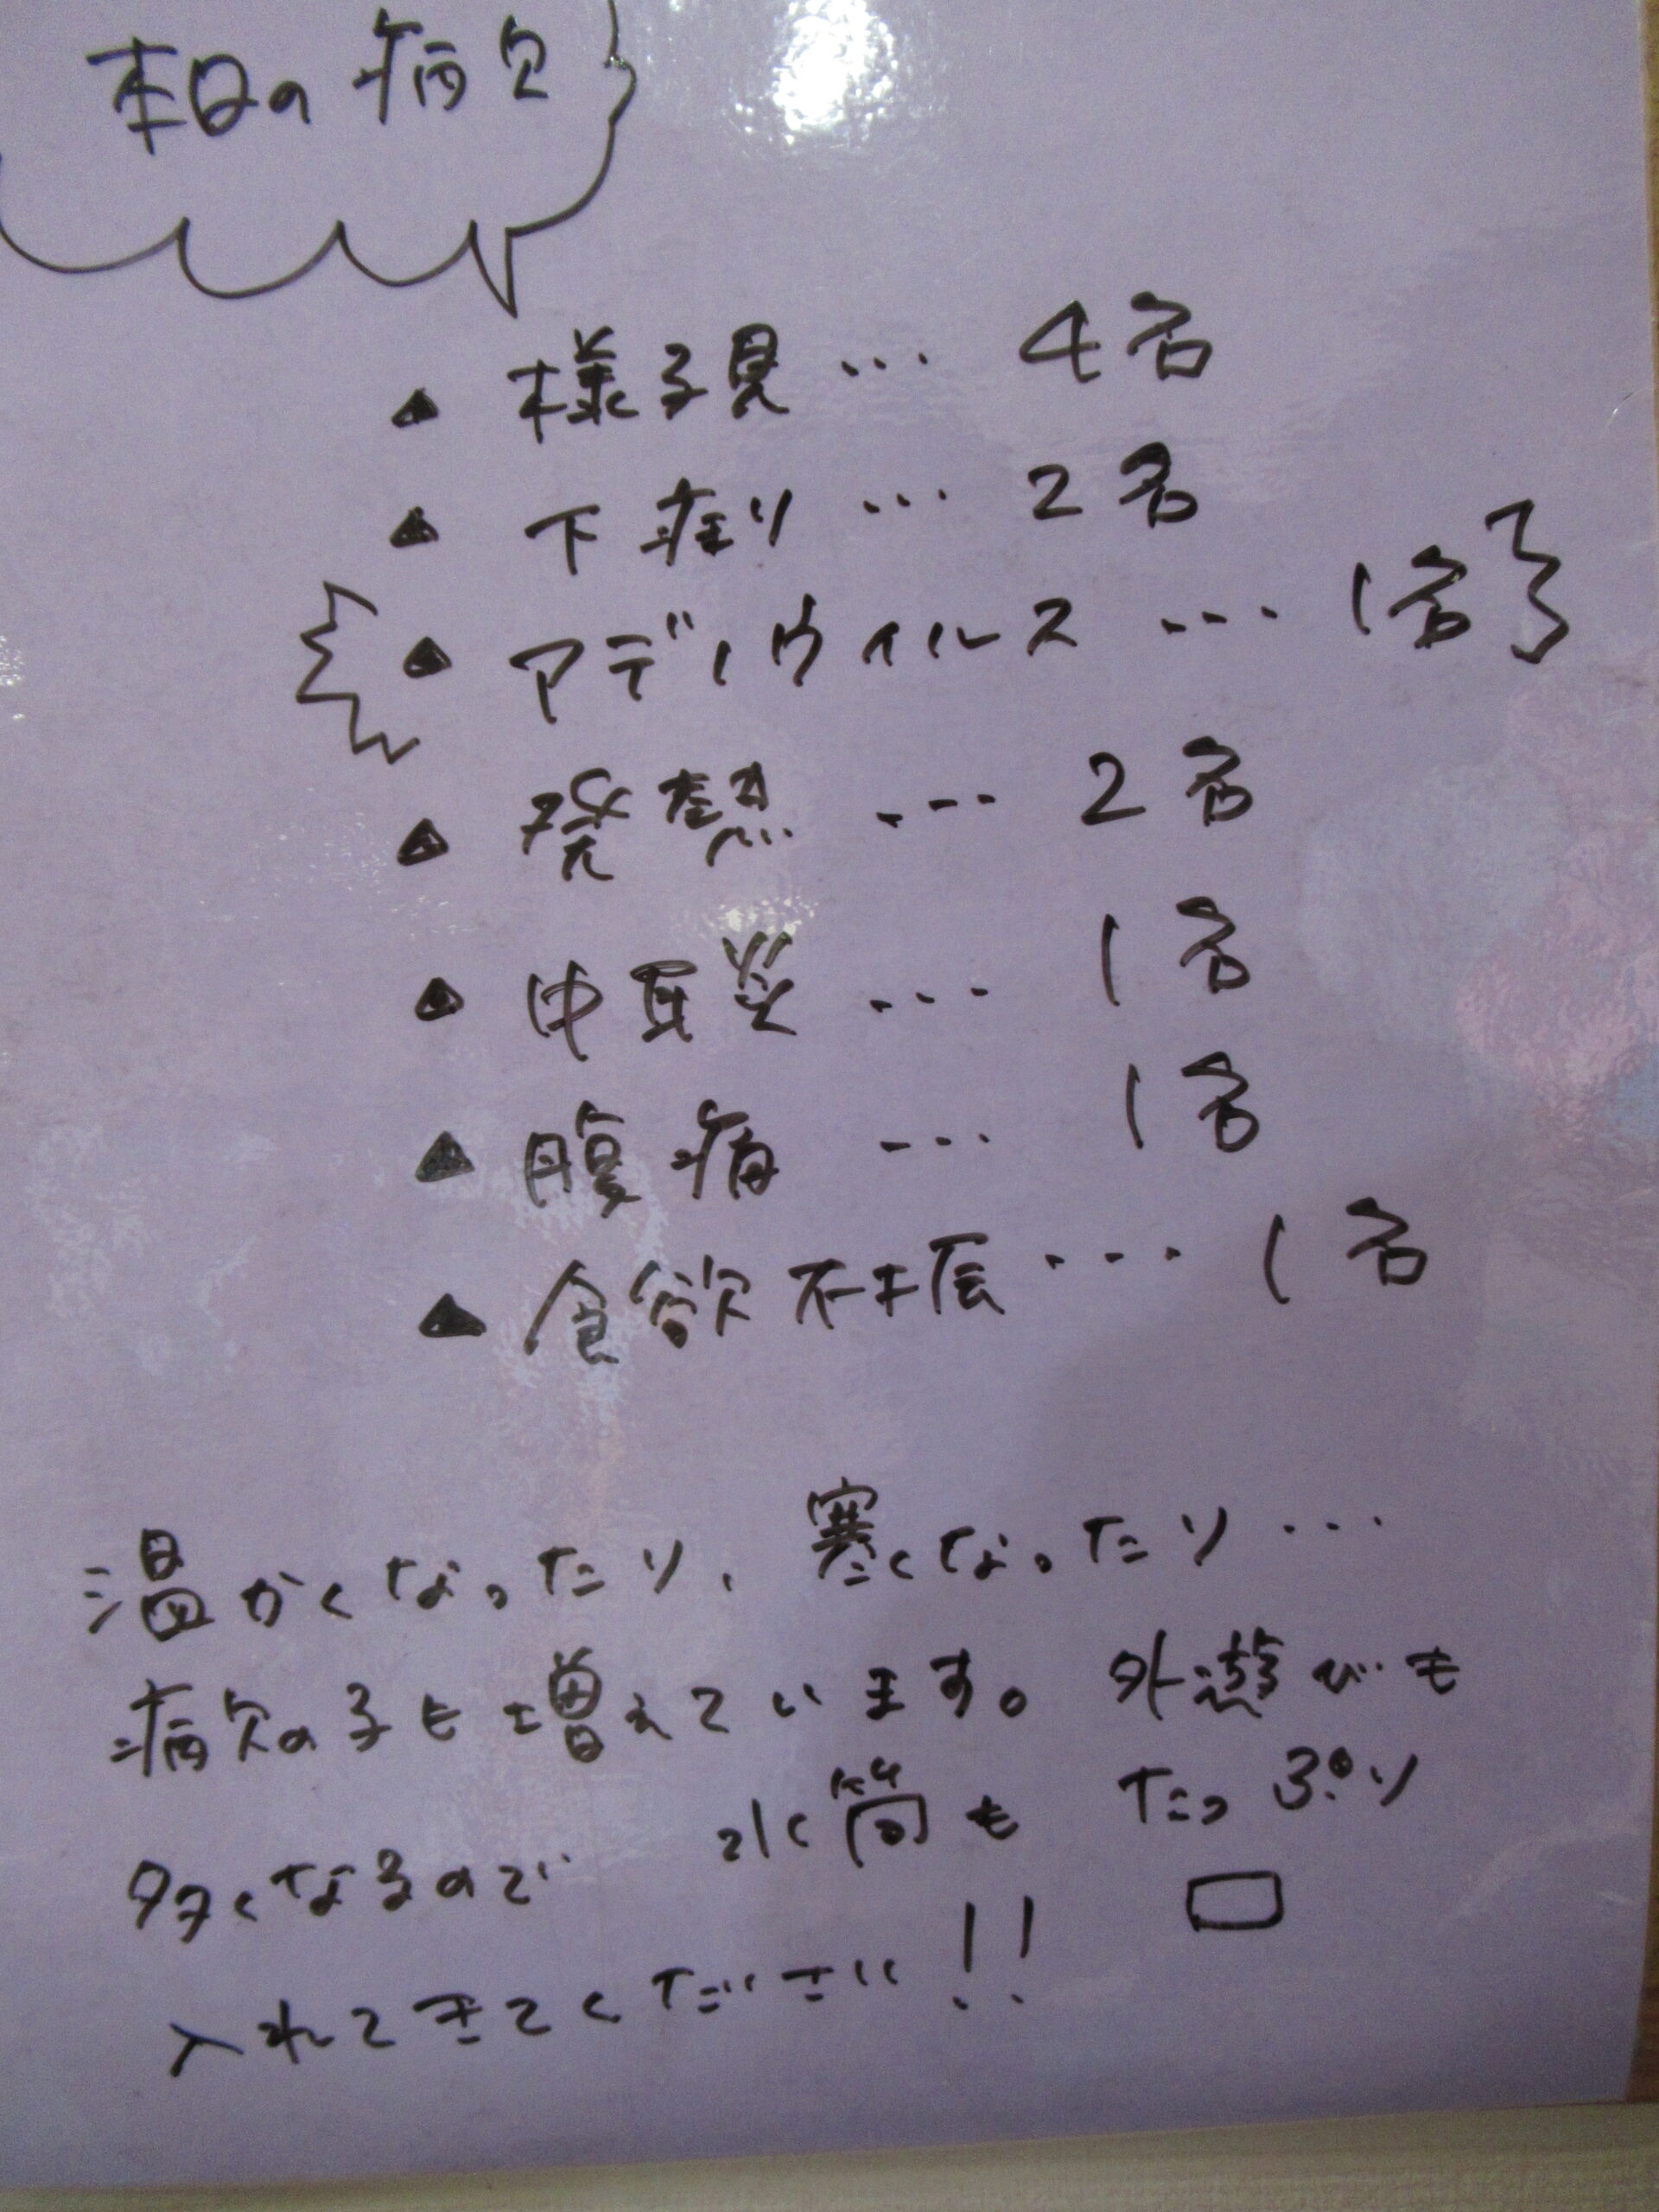 本日の病欠
▲ 様子見… 4名
▲ 下痢り… 2名
▲ アデノウイルス … 1名
▲ 発熱 … 2名
▲ 中耳炎 … 1名
▲ 腹痛 … 1名
▲ 食欲不振 … 1名
温かくなったり、寒くなったり…
病欠の子も増えています。外遊びも
多くなるので 水筒も たっぷり
入れてきてください!!